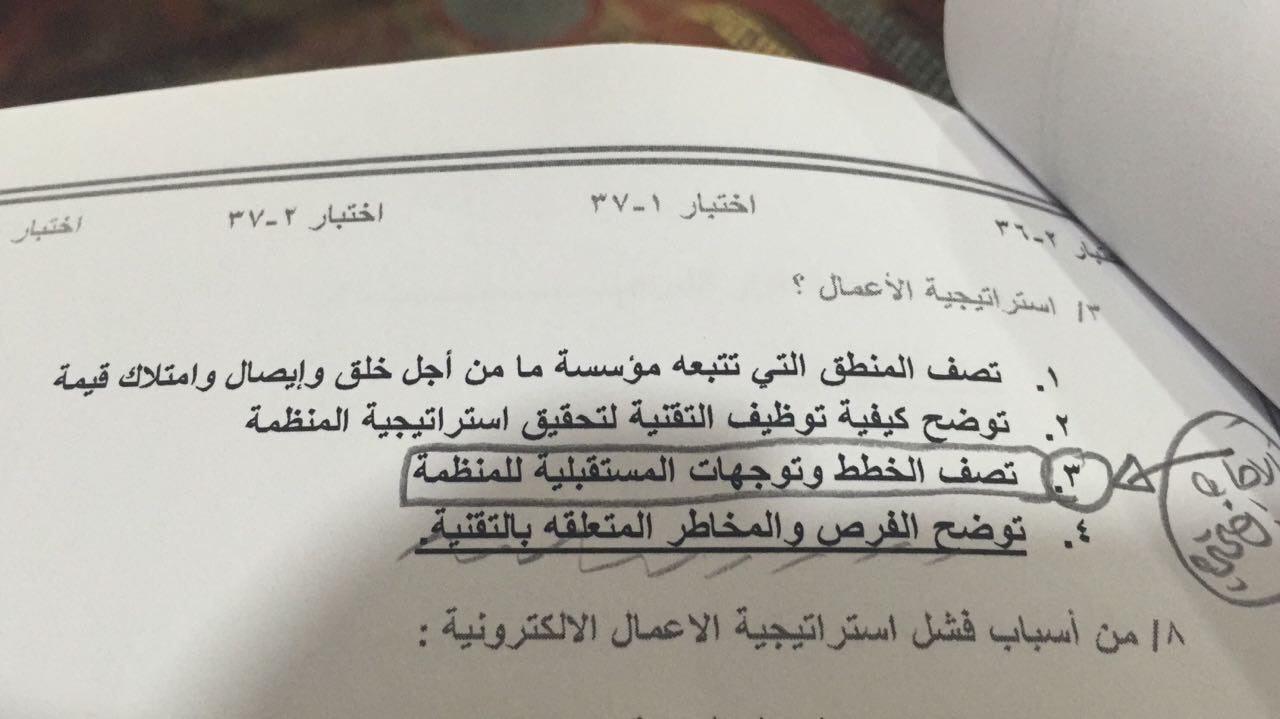 اختبار ٢-٣٦ اختبار ١-٣٧ اختبار ٢-٣٧ اختبار
٣/ استراتيجية الأعمال ؟
١. تصف المنطق التي تتبعه مؤسسة ما من أجل خلق وإيصال وامتلاك قيمة
٢. توضح كيفية توظيف التقنية لتحقيق استراتيجية المنظمة
٣. تصف الخطط وتوجهات المستقبلية للمنظمة
٤. توضح الفرص والمخاطر المتعلقه بالتقنية.
الاجابه
٨/ من أسباب فشل استراتيجية الاعمال الالكترونية :